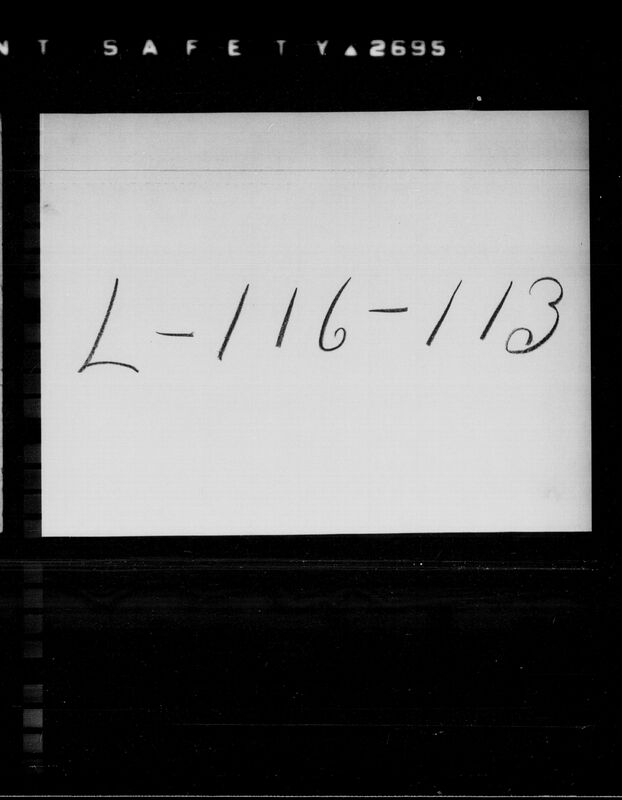 NT SAFETY▲2695
L-116-113